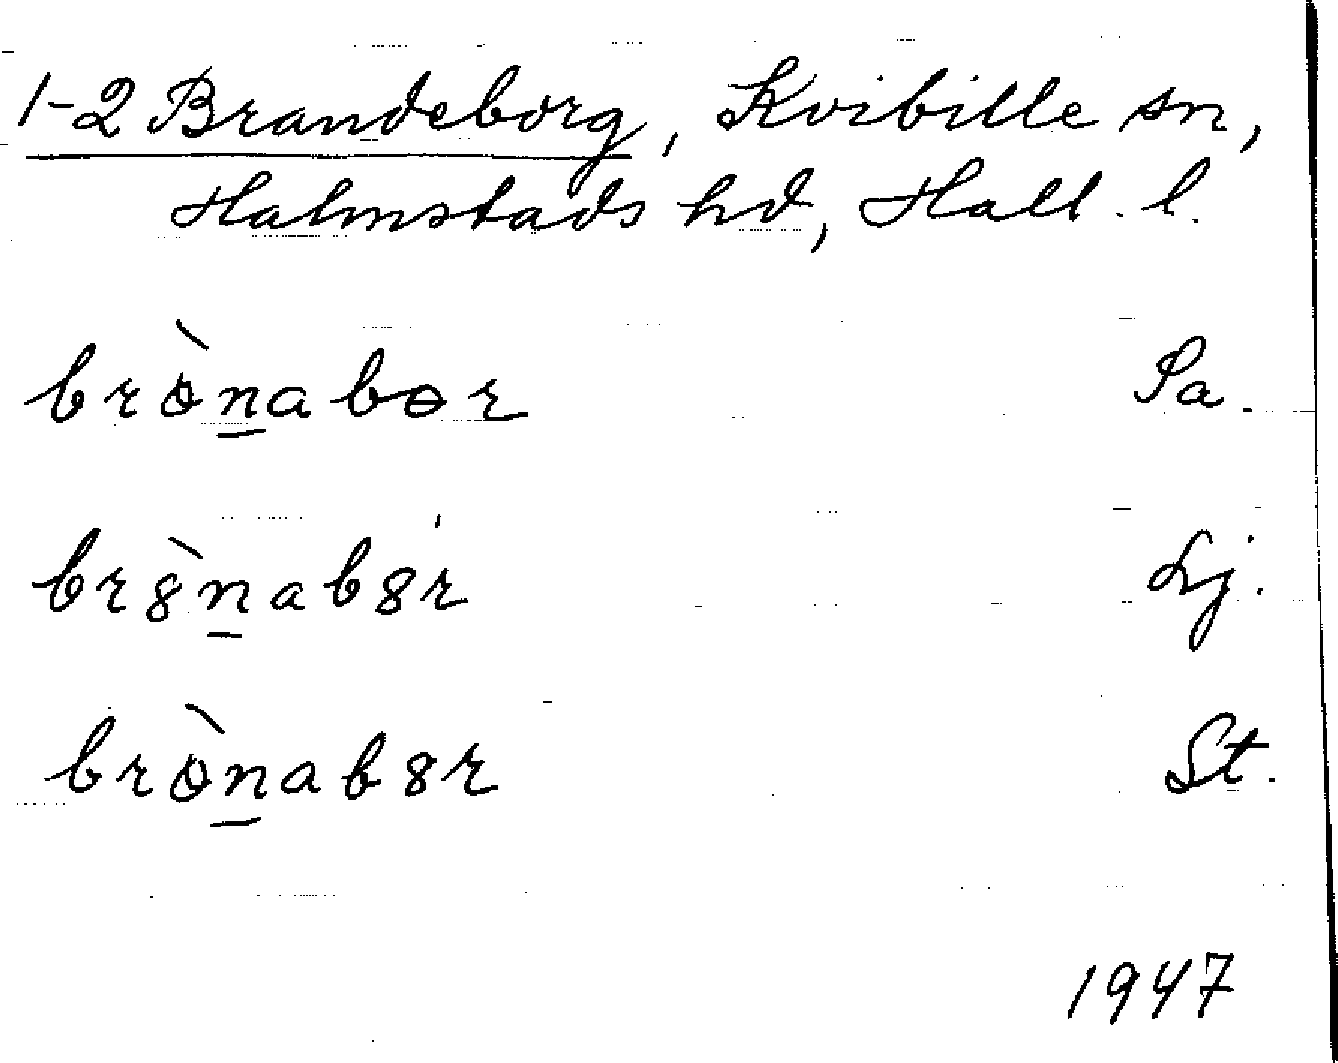 1-2 Brandeborg, Kvibille sn,
Halmstads hd, Hall. l.
brɵ̀nabɵr Sa.
br8̀nab8r Lj.
brɵ̀nab8r St.
1947